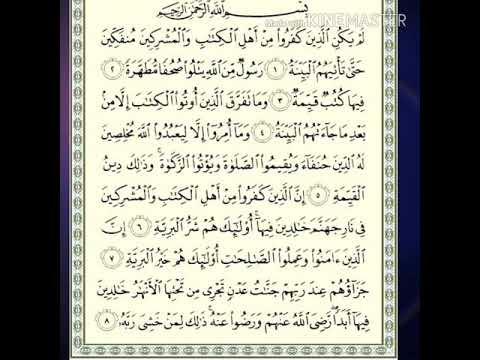 بِسْمِ اللَّهِ الرَّحْمَٰنِ الرَّحِيمِ
Made with KINEMASTER
لَمْ يَكُنِ الَّذِينَ كَفَرُوا مِنْ أَهْلِ الْكِتَابِ وَالْمُشْرِكِينَ مُنْفَكِّينَ
حَتَّى تَأْتِيَهُمُ الْبَيِّنَةُ ١ رَسُولٌ مِنَ اللَّهِ يَتْلُوا صُحُفًا مُطَهَّرَةً ٢
فِيهَا كُتُبٌ قَيِّمَةٌ ٣ وَمَا تَفَرَّقَ الَّذِينَ أُوتُوا الْكِتَابَ إِلَّا مِنْ
بَعْدِ مَا جَاءَتْهُمُ الْبَيِّنَةُ ٤ وَمَا أُمِرُوا إِلَّا لِيَعْبُدُوا اللَّهَ مُخْلِصِينَ
لَهُ الدِّينَ حُنَفَاءَ وَيُقِيمُوا الصَّلَوٰةَ وَيُؤْتُوا الزَّكَوٰةَ ۚ وَذَٰلِكَ دِينُ
الْقَيِّمَةِ ٥ إِنَّ الَّذِينَ كَفَرُوا مِنْ أَهْلِ الْكِتَابِ وَالْمُشْرِكِينَ
فِي نَارِ جَهَنَّمَ خَالِدِينَ فِيهَا ۚ أُولَٰئِكَ هُمْ شَرُّ الْبَرِيَّةِ ٦ إِنَّ
الَّذِينَ ءَامَنُوا وَعَمِلُوا الصَّالِحَاتِ أُولَٰئِكَ هُمْ خَيْرُ الْبَرِيَّةِ ٧
جَزَاؤُهُمْ عِنْدَ رَبِّهِمْ جَنَّاتُ عَدْنٍ تَجْرِي مِنْ تَحْتِهَا الْأَنْهَارُ خَالِدِينَ
فِيهَا أَبَدًا ۖ رَضِيَ اللَّهُ عَنْهُمْ وَرَضُوا عَنْهُ ۚ ذَٰلِكَ لِمَنْ خَشِيَ رَبَّهُ ٨